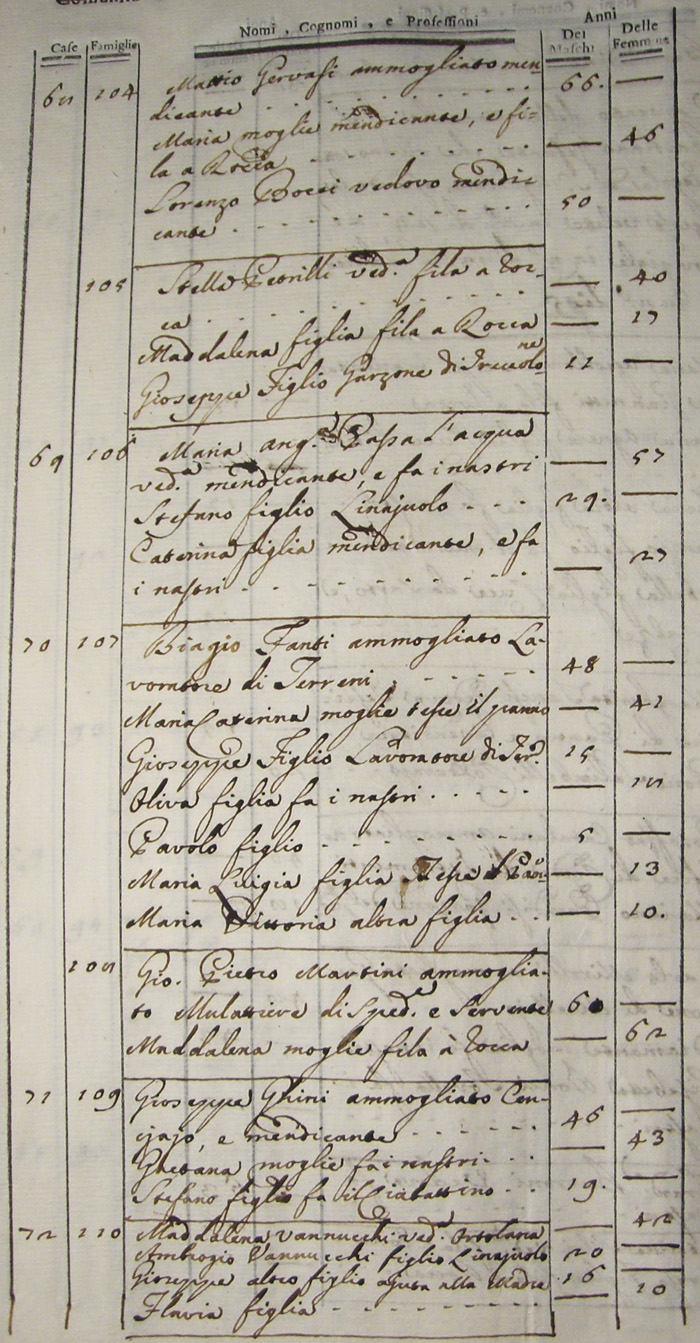 Nomi, Cognomi, e Professioni
Anni
Case Famiglie Dei Maschi Delle Femmine
68 104 Mattio Gervasi ammogliato men
dicante 66. —
Maria moglie mendicante, e fi=
la a Rocca — 46
Lorenzo Bocci vedovo mendi=
cante 50 —
105 Stella Petrilli ved.ª fila a Roc=
ca — 40
Maddalena figlia fila a Rocca — 17
Gioseppe Figlio Garzone di 11 —
69 106 Maria Ang.ª Passa l'acqua
ved.ª mendicante, e fa i nastri — 57
Stefano figlio Linajuolo 29. —
Caterina figlia mendicante, e fa
i nastri — 27
70 107 Biagio Fanti ammogliato La=
voratore di Terreni 48 —
Maria Caterina moglie tesse il panno — 41
Gioseppe Figlio Lavoratore di Ter. 15 —
Oliva figlia fa i nastri — 18
Pavolo figlio 5 —
Maria Luigia figlia Tesse — 13
Maria Vittoria altra figlia — 10.
108 Gio. Pietro Martini ammoglia=
to Mulattiere di Sped.ª e Servente 60 —
Maddalena moglie fila à Rocca — 62
71 109 Gioseppe Ghini ammogliato Cen=
ciajo, e mendicante 46 —
Gaetana moglie fa i nastri — 43
Stefano figlio fa il Ciabattino 19. —
72 110 Maddalena Vannucchi ved.ª Ortolana — 42
Ambrogio Vannucchi figlio Linajuolo 20 —
Gioseppe altro figlio ajuta alla Madre 16 —
Flavia figlia — 10